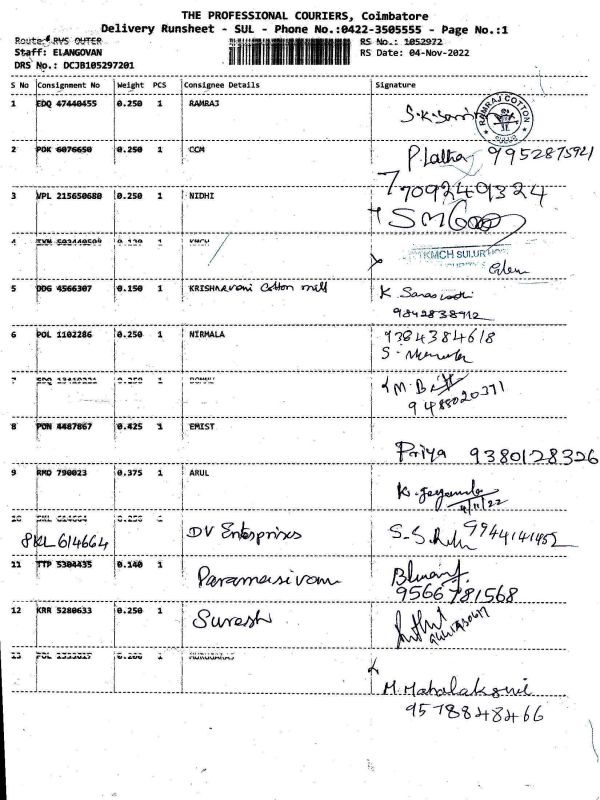 THE PROFESSIONAL COURIERS, Coimbatore
Delivery Runsheet - SUL - Phone No.:0422-3505555 - Page No.:1
Route: RVS OUTER
RS No.: 1052972
Staff: ELANGOVAN
RS Date: 04-Nov-2022
DRS No.: DCJB105297201
S No Consignment No Weight PCS Consignee Details Signature
1 EDQ 47440455 0.250 1 RAMRAJ
RAMRAJ COTTON
SULUR
2 POK 6076650 0.250 1 CCM P. Latha 9952875921
3 VPL 215650680 0.250 1 NIDHI 7092491324
4 0.130 KMCH
KMCH SULUR
5 DDG 4566307 0.150 1 KRISHnaveni Cotton mill K Saraswathi
9842838912
6 POL 1102286 0.250 1 NIRMALA 9384384618
7 0.250 1
9488020371
8 PON 4487867 0.425 1 EMIST Priya 9380128326
9 RMD 790023 0.375 1 ARUL
4/11/22
10 SKL 614664 0.250
SKL 614664 DV Enterprises 9944141452
11 TTP 5304435 0.140 1 Paramasivam
9566781568
12 KRR 5280633 0.250 1 Suresh
13 POL 1 MURUGARAJ
M. Mahalakshmi
9578848466